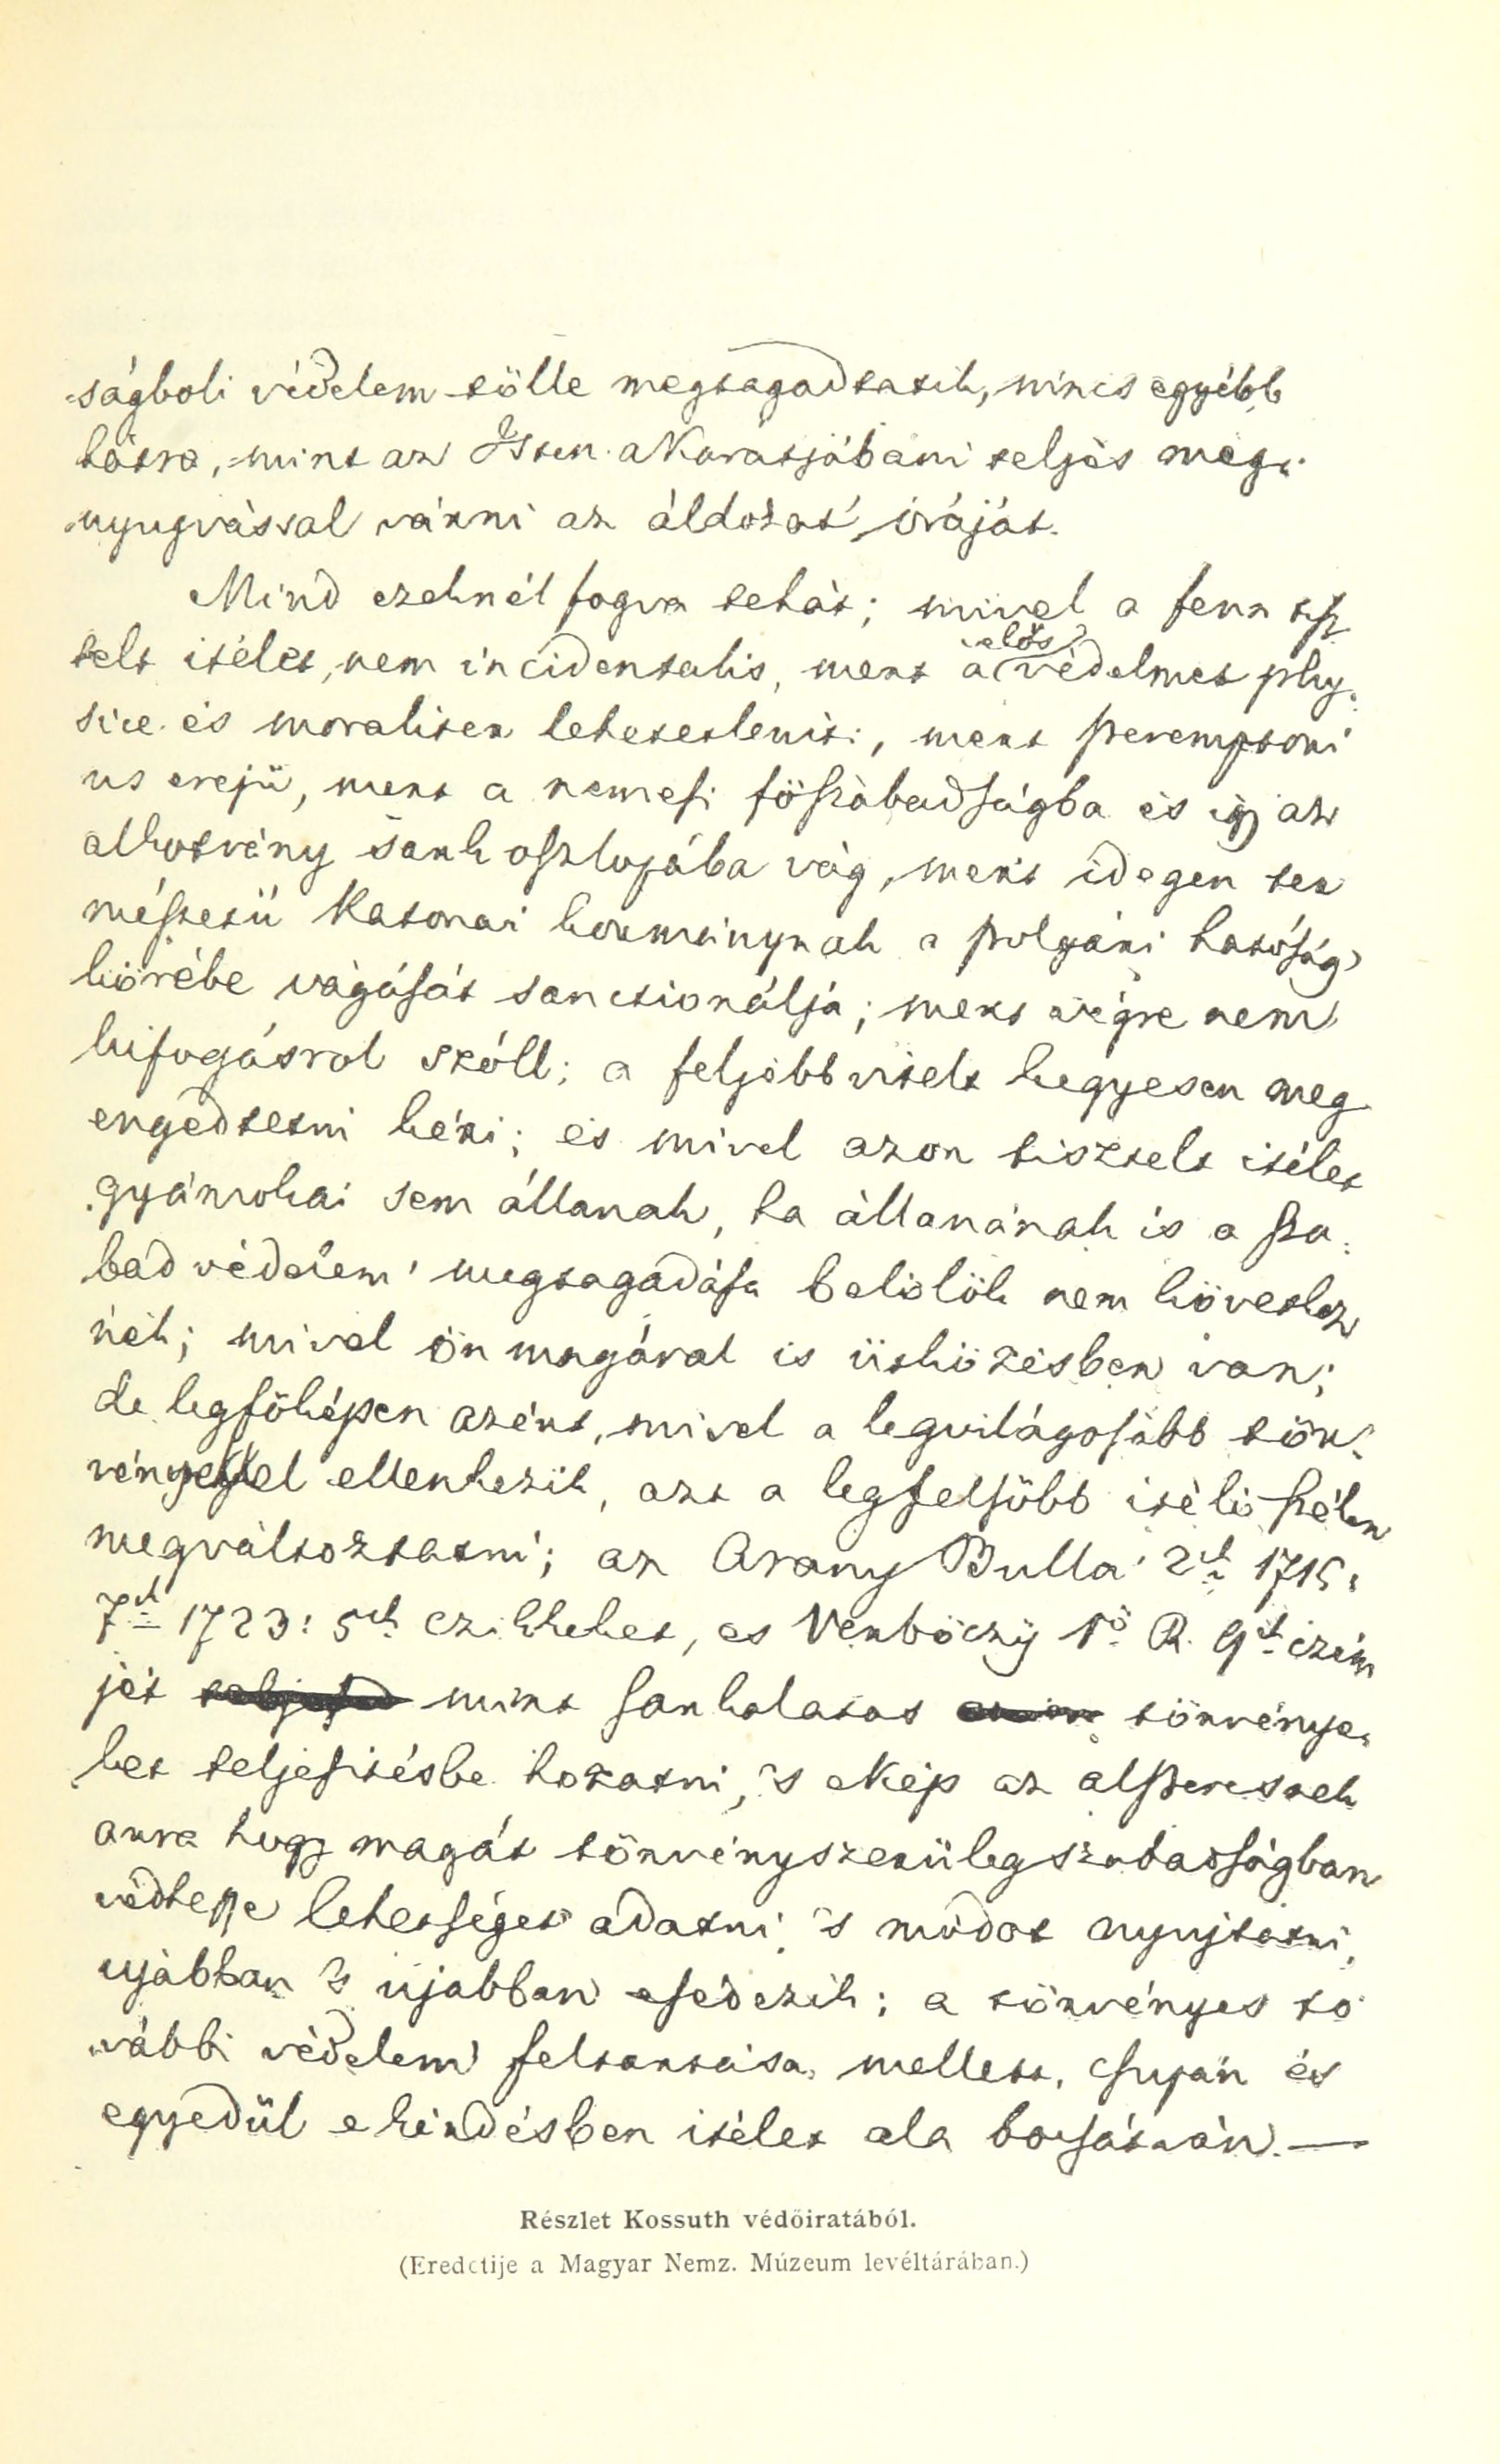 -ságboli védelem tölle megtagadtatik, nincs egyébb
hátra, mint az Isten akaratjábani teljes meg-
nyugvással várni az áldozat' óráját.
Mind ezeknél fogva tehát; mivel a fenn tisz
telt itélet, nem incidentalis, mert a védelmet phy-
előső
sice és moralisen lehetetleniti, mert peremptori
us erejü, mert a nemesi főszabadságba és igy az
alkotvány sark oszlopába vág, mert idegen ter
mészetü katonai kormánynak a polgári hatóság'
körébe vágását sanctionálja; mert végre nem
kifogásrol szóll; a feljebb vitelt kegyesen meg
engedtetni kéri; és mivel azon tisztelt itélet
gyámokai sem állanak, ha állanának is a sza-
bad védelem' megtagadása belölök nem következ
nék; mivel ön magával is ütközésben van;
de legföképen azért, mivel a legvilágosabb tör-
vényekkel ellenkezik, azt a legfelsöbb itélö széken
megváltoztatni; az Arany Bulla' 2ik 1715:
7ik 1723: 5ik czikkeket, es Verböczÿ 1ö R. 9ik czim
jét mint sarkalatos törvénye-
ket teljesitésbe hozatni, 's ekép az alperesnek
arra hogy magát törvényszerüleg szabadságban
védhesse lehetséget adatni 's módot nyujtatni,
ujabban 's ujabban esedezik; a törvényes to
vábbi védelem' feltartása mellett, csupán és
egyedül e kérdésben itélet alá botsátván. —
Részlet Kossuth védőiratából.
(Eredetije a Magyar Nemz. Múzeum levéltárában.)